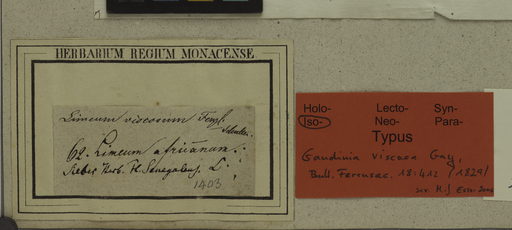 HERBARIUM REGIUM MONACENSE.
Limeum viscosum Fenzl.
62. Limeum africanum.
Herb. H. Senegalens. L.
1403
Holo- Lecto- Syn-
Iso- Neo- Para-
Typus
Gaudinia viscosa Gay,
Bull. Ferussac. 18:412 (1829)